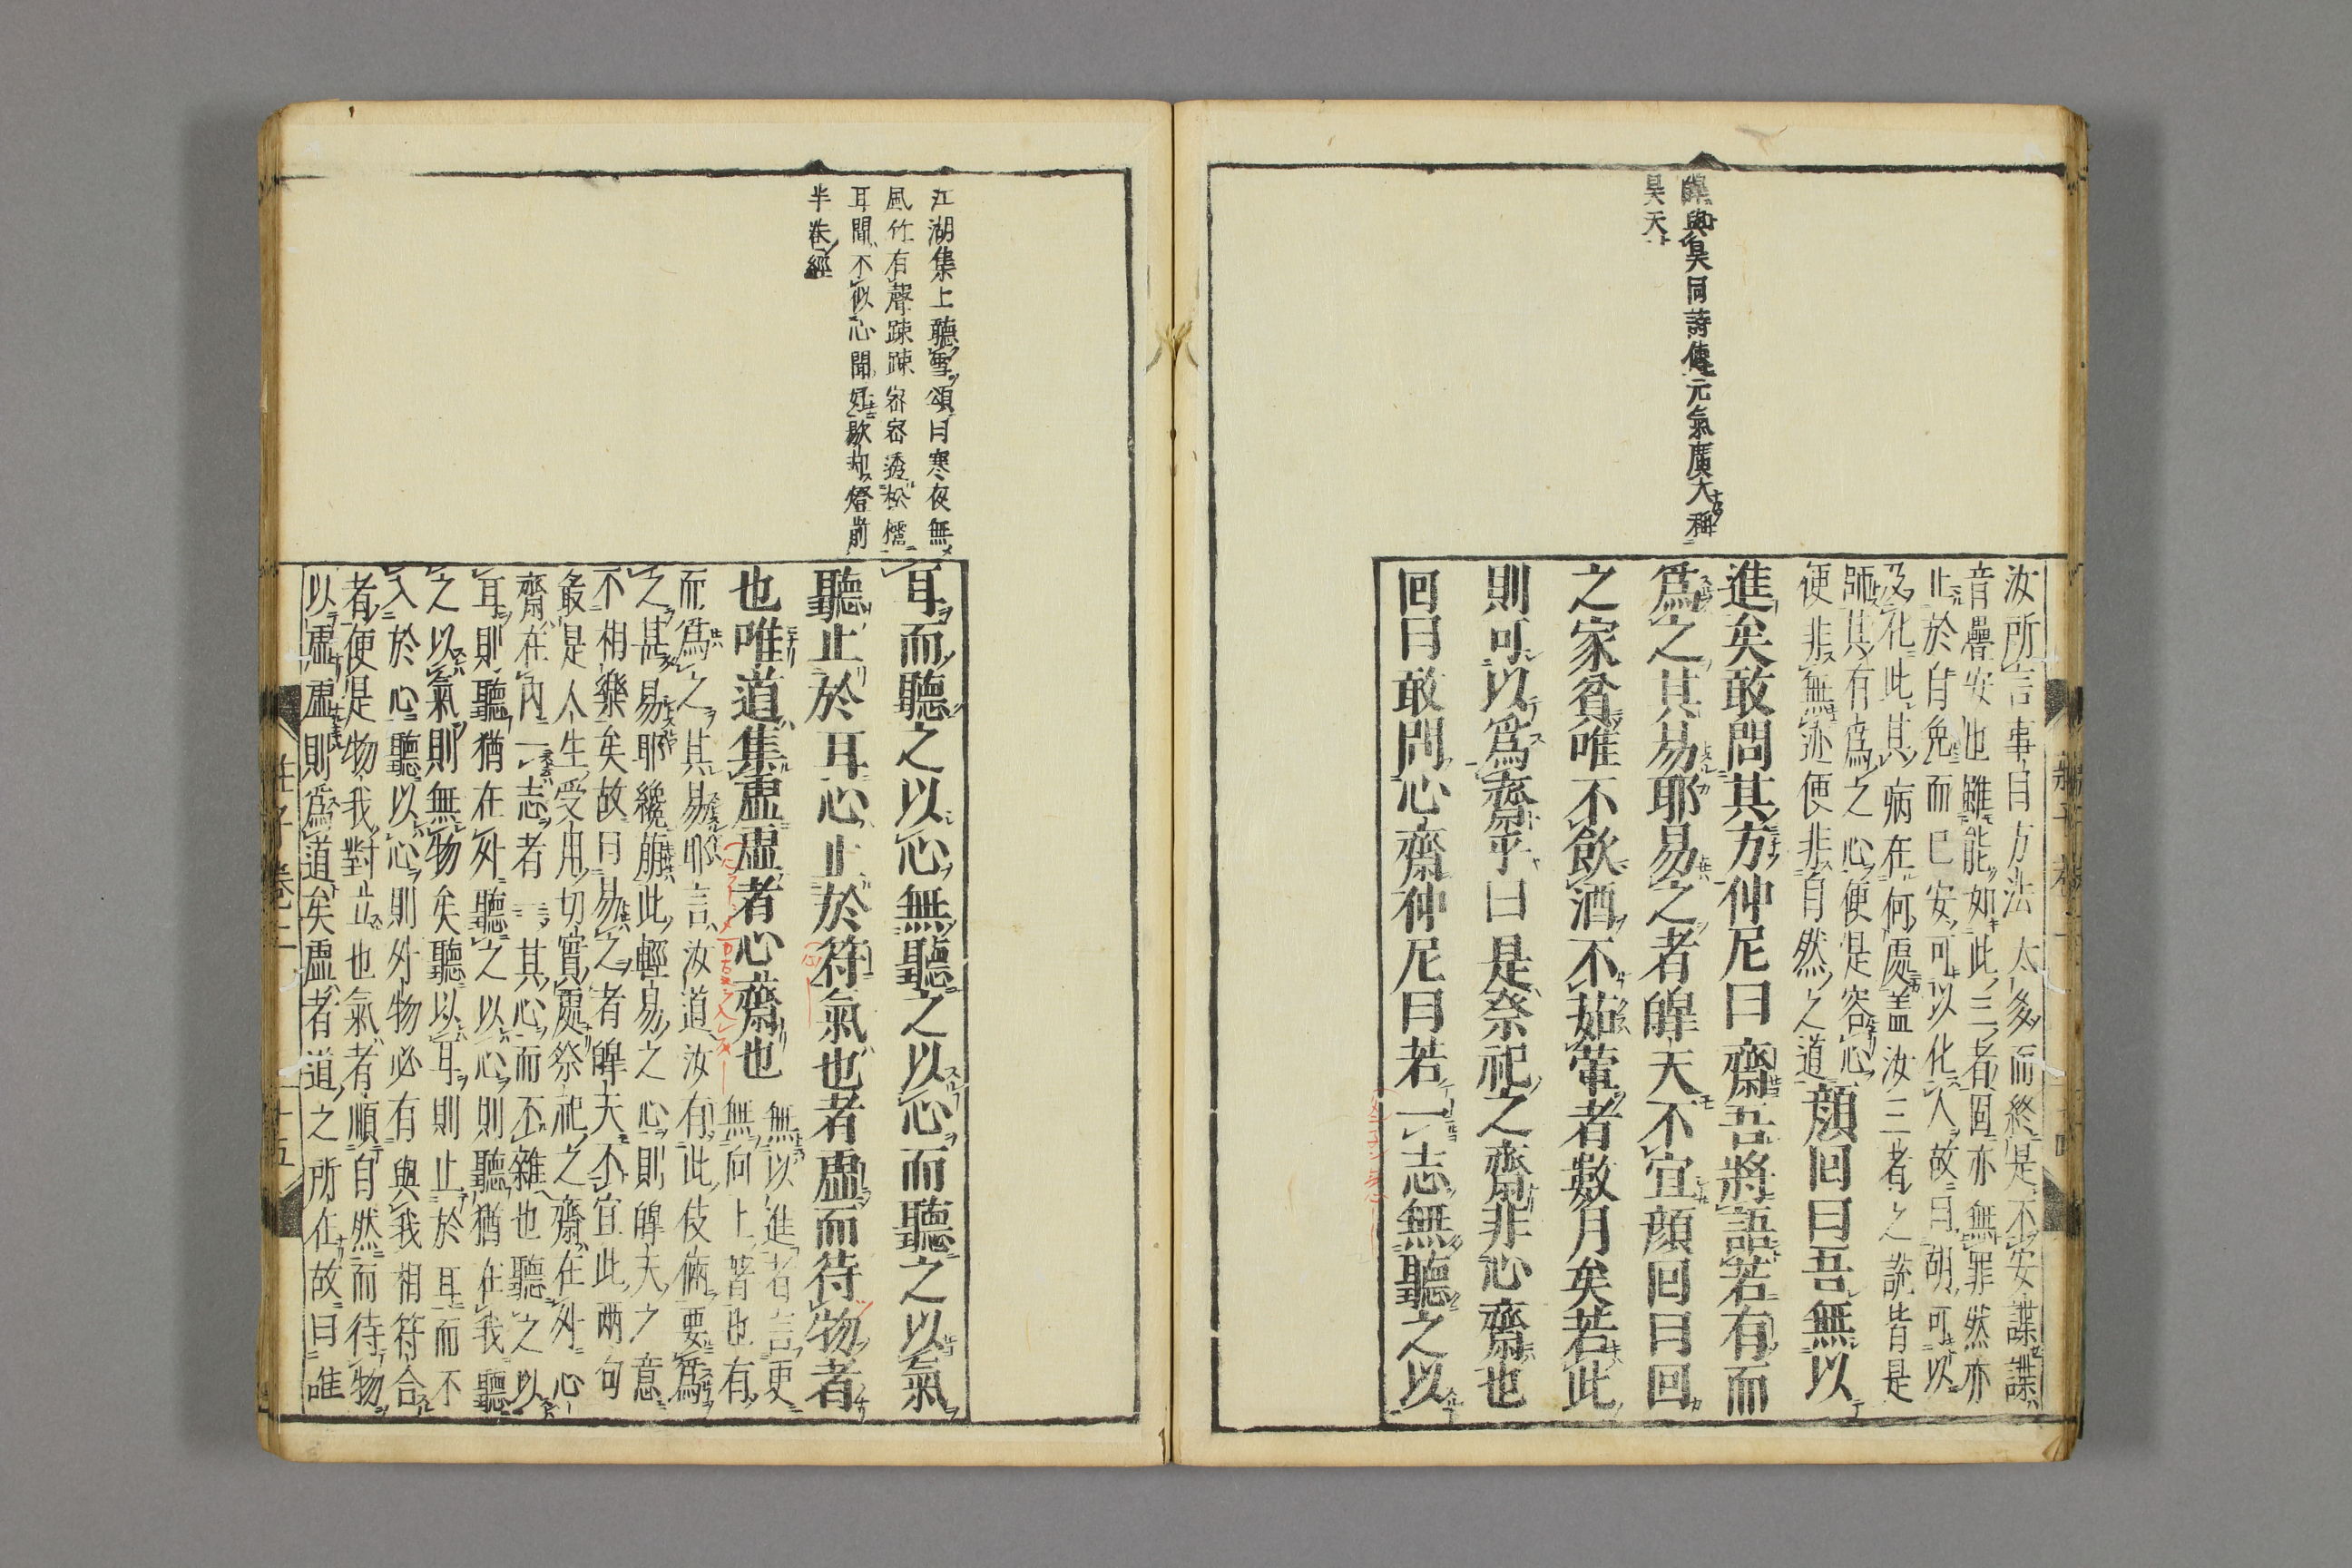 皥與昊同詩傳元氣廣大稱
昊天
汝所言事目方法太多而終是不安諜諜
音疊安也雖能如此三者固亦無罪然亦
止於自免而已安可以化人故曰胡可以
及化此其病在何處盖汝三者之說皆是
師其有爲之心便是容心
便非無迹便非自然之道顔回曰吾無以
進矣敢問其方仲尼曰齋吾將語若有而
爲之其易耶易之者皥天不宜顔回曰回
之家貧唯不飲酒不茹葷者數月矣若此
則可以爲齋乎曰是祭祀之齋非心齋也
回曰敢問心齋仲尼曰若一志無聽之以
江湖集上聽雪頌曰寒夜無
風竹有聲踈踈密密透松櫺
耳聞不似心聞好歇却燈前
半卷經
耳而聽之以心無聽之以心而聽之以氣
聽止於耳心止於符氣也者虛而待物者
也唯道集虛虛者心齋也
無以進者言更
無向上著也有
而爲之其易耶言汝道汝有此伎倆要爲
之甚易耶纔萠此輕易之心則皥天之意
不相樂矣故曰易之者皥天不宜此兩句
㝡是人生受用切實處祭祀之齋在外心
齋在內一志者一其心而不雜也聽之以
耳則聽猶在外聽之以心則聽猶在我聽
之以氣則無物矣聽以耳則止於耳而不
入於心聽以心則外物必有與我相符合
者便是物我對立也氣者順自然而待物
以虛虛則爲道矣虛者道之所在故曰唯
莊子卷二
十五